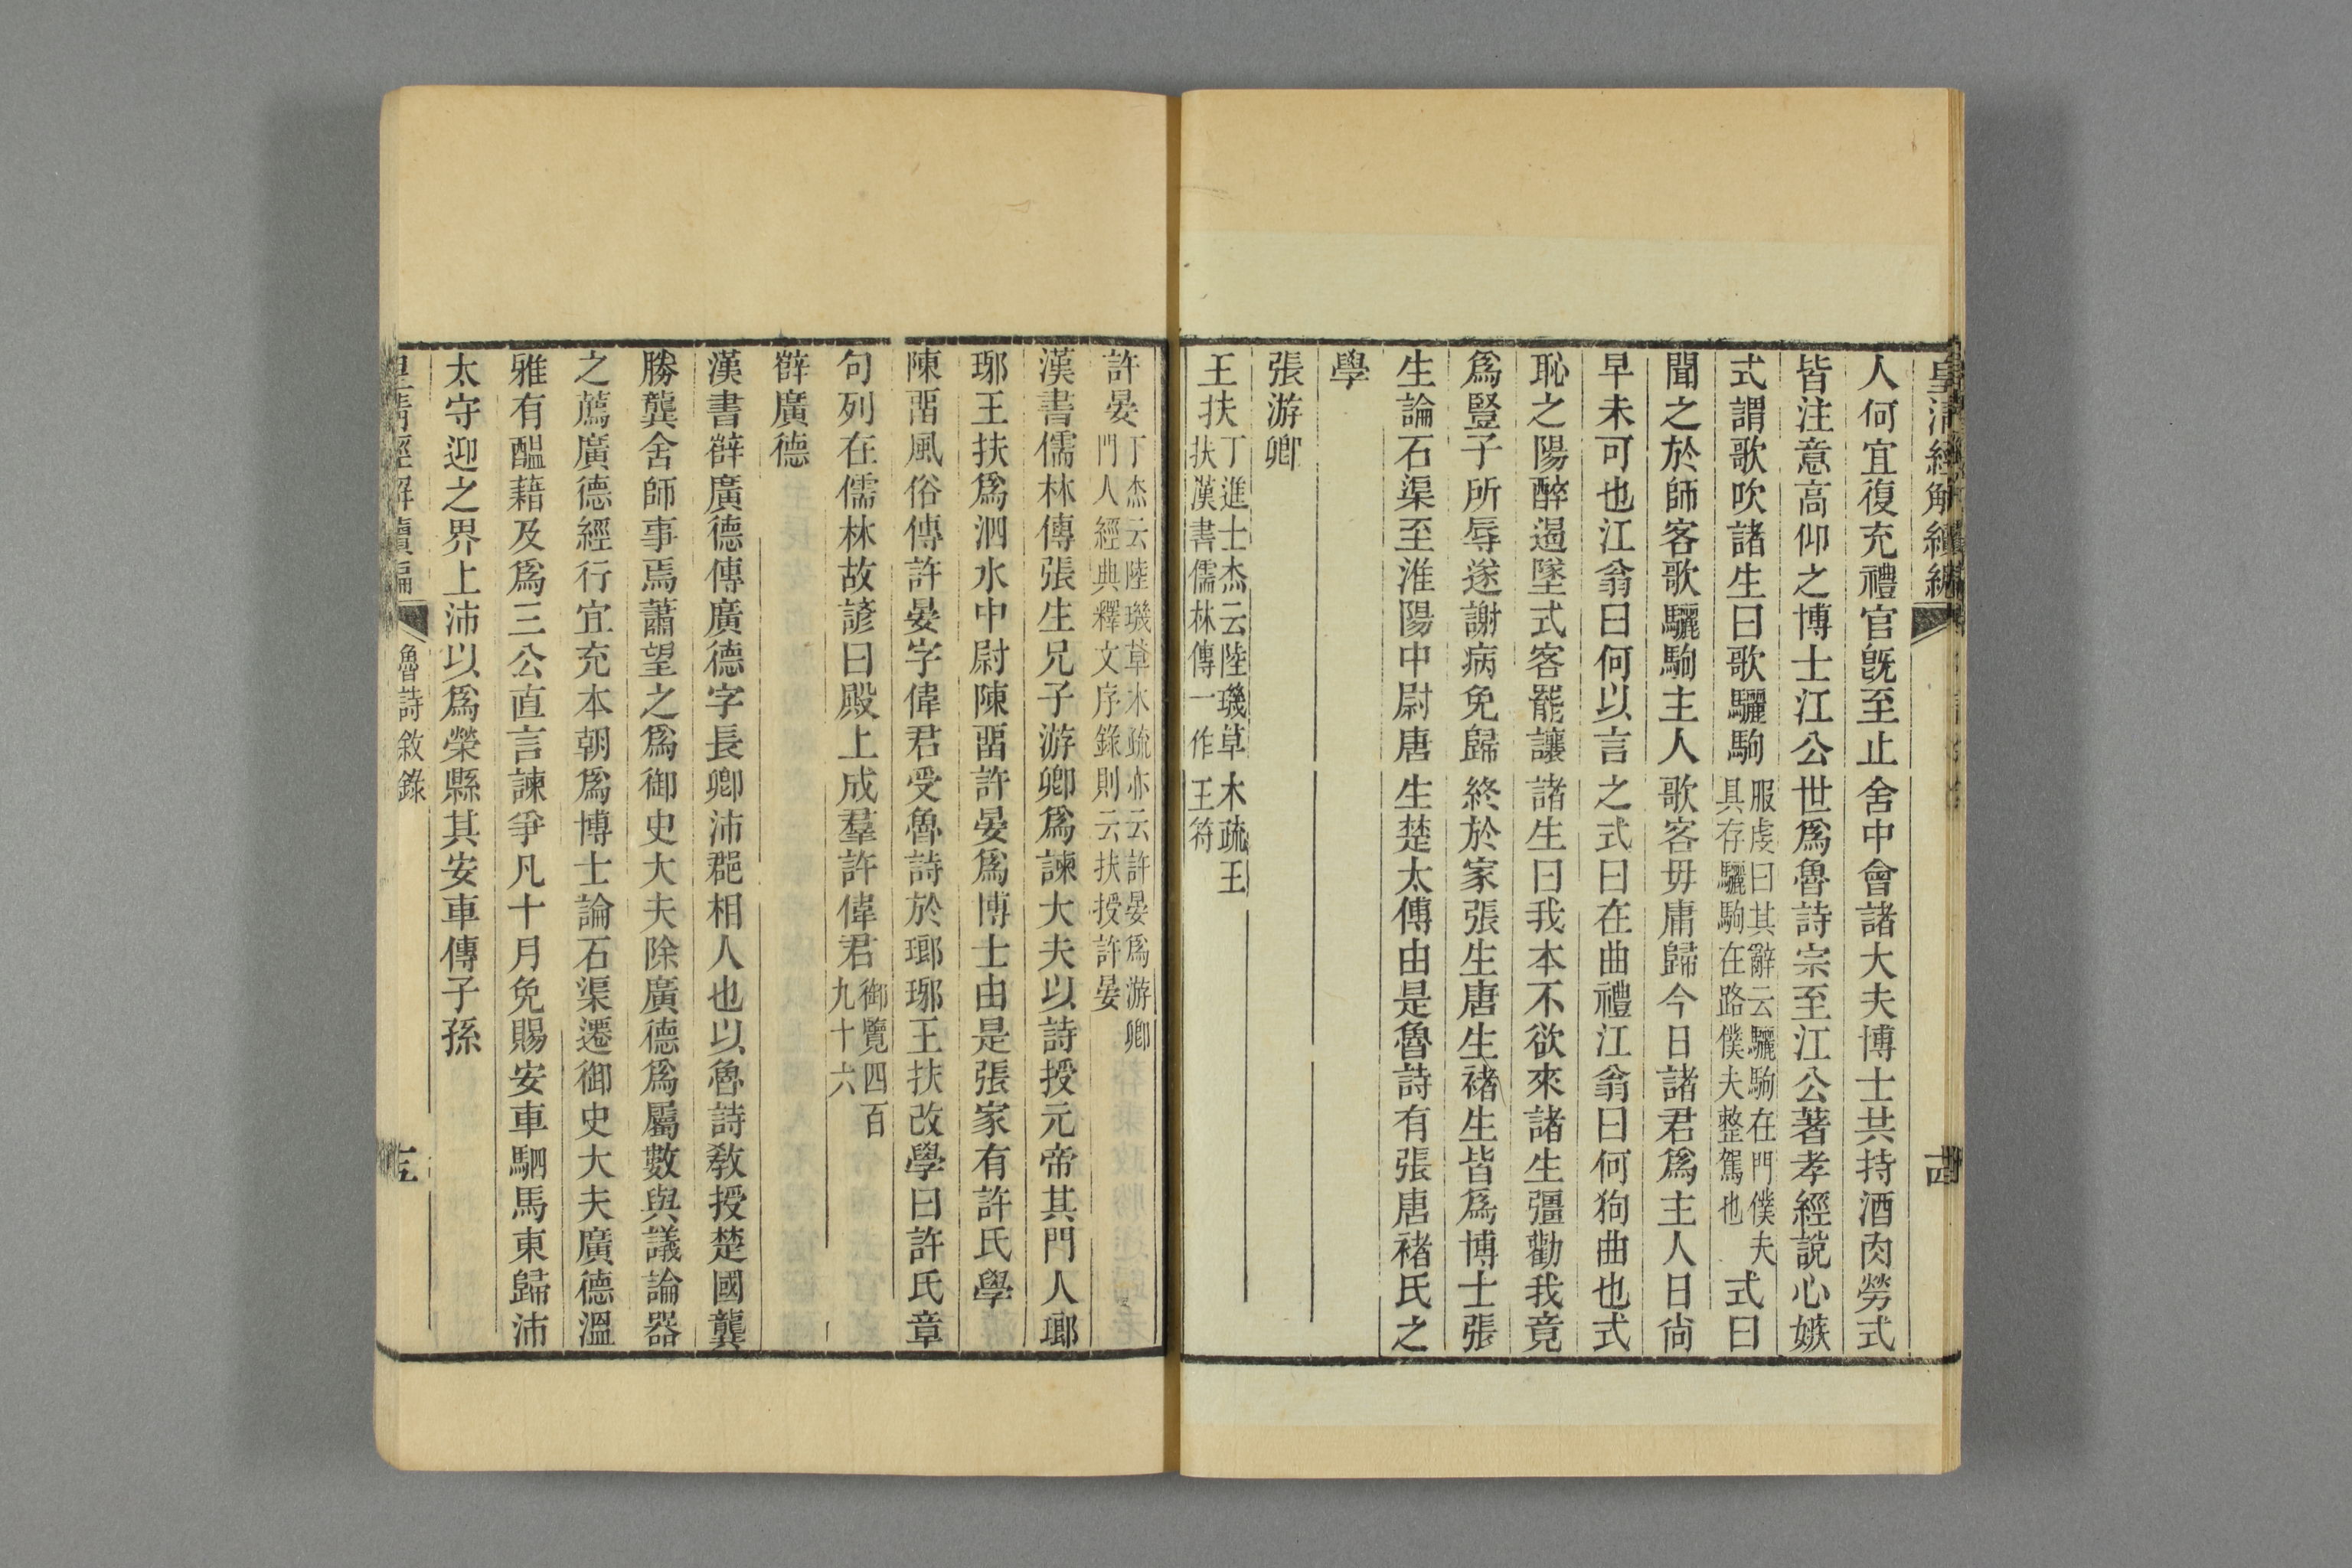 皇清經解續編
人何宜復充禮官旣至止舍中會諸大夫博士共持酒肉勞式
皆注意高仰之博士江公世爲魯詩宗至江公著孝經說心嫉
式謂歌吹諸生曰歌驪駒服虔曰其辭云驪駒在門僕夫具存驪駒在路僕夫整駕也式曰
聞之於師客歌驪駒主人歌客毋庸歸今日諸君爲主人日尙
早未可也江翁曰何以言之式曰在曲禮江翁曰何狗曲也式
恥之陽醉逿墜式客罷讓諸生曰我本不欲來諸生彊勸我竟
爲豎子所辱遂謝病免歸終於家張生唐生褚生皆爲博士張
生論石渠至淮陽中尉唐生楚太傅由是魯詩有張唐褚氏之
學
張游卿
王扶丁進士杰云陸璣草木疏王扶漢書儒林傳一作王符
許晏丁杰云陸璣草木疏亦云許晏爲游卿門人經典釋文序錄則云扶授許晏
漢書儒林傳張生兄子游卿爲諫大夫以詩授元帝其門人瑯
琊王扶爲泗水中尉陳畱許晏爲博士由是張家有許氏學
陳畱風俗傳許晏字偉君受魯詩於瑯琊王扶改學曰許氏章
句列在儒林故諺曰殿上成羣許偉君御覽四百九十六
薛廣德
漢書薛廣德傳廣德字長卿沛郡相人也以魯詩敎授楚國龔
勝龔舍師事焉蕭望之爲御史大夫除廣德爲屬數與議論器
之薦廣德經行宜充本朝爲博士論石渠遷御史大夫廣德溫
雅有醞藉及爲三公直言諫爭凡十月免賜安車駟馬東歸沛
太守迎之界上沛以爲榮縣其安車傳子孫
皇淸經解續編 魯詩敘錄